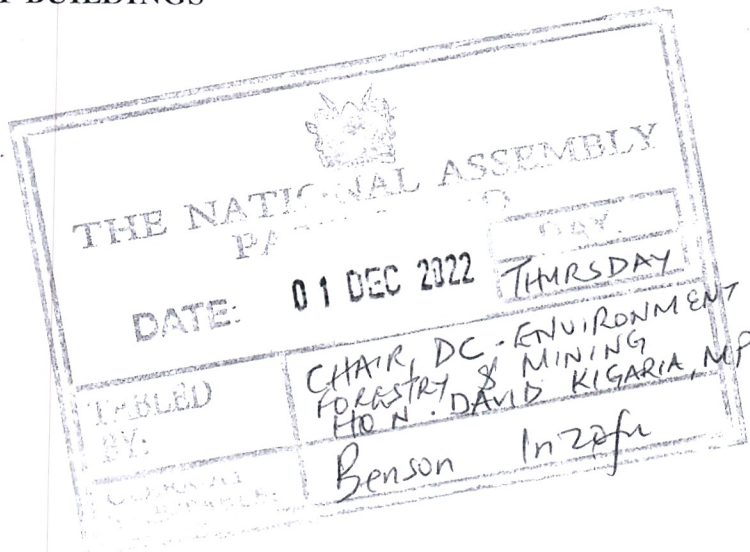 BUILDINGS
THE NATIONAL ASSEMBLY
DATE: 01 DEC 2022
DAY.
THURSDAY
TABLED
BY:
CHAIR, DC. ENVIRONMENT
FORESTRY & MINING
HON. DAVID KIGARIA, MP
Benson Inzofu